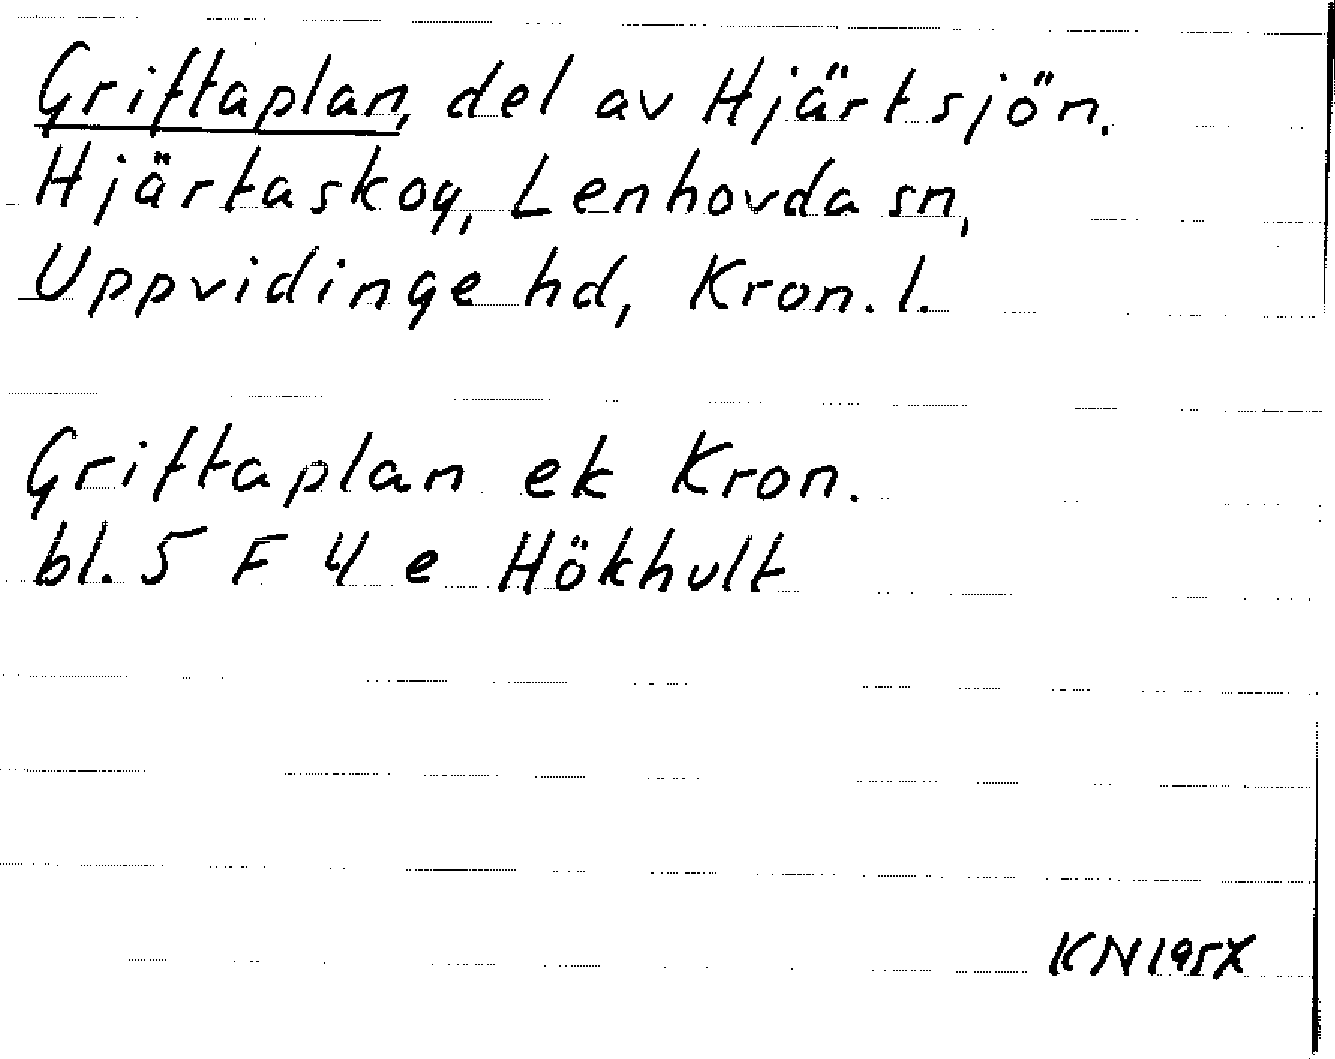 Griftaplan, del av Hjärtsjön.
Hjärtaskog, Lenhovda sn,
Uppvidinge hd, Kron. l.
Griftaplan ek Kron.
bl. 5 F 4 e Hökhult